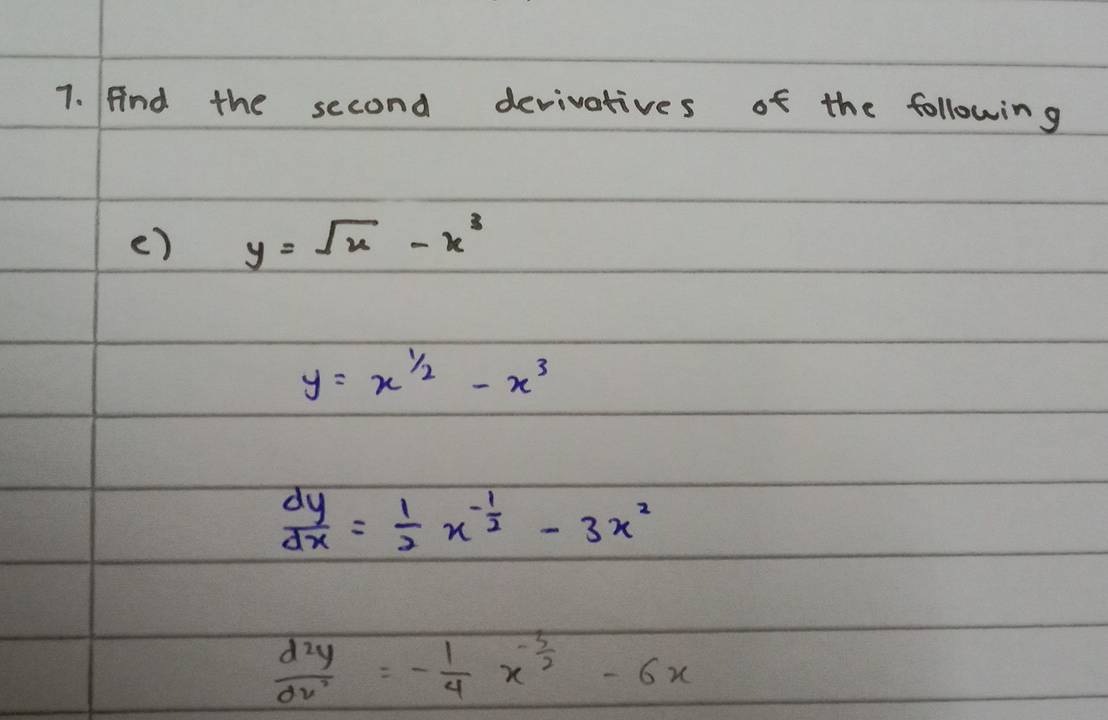 7. Find the second derivatives of the following
c) y = √x - x³
y = x^1/2 - x³
dy/dx = 1/2 x^-1/2 - 3x²
d²y/dx² = -1/4 x^-3/2 - 6x